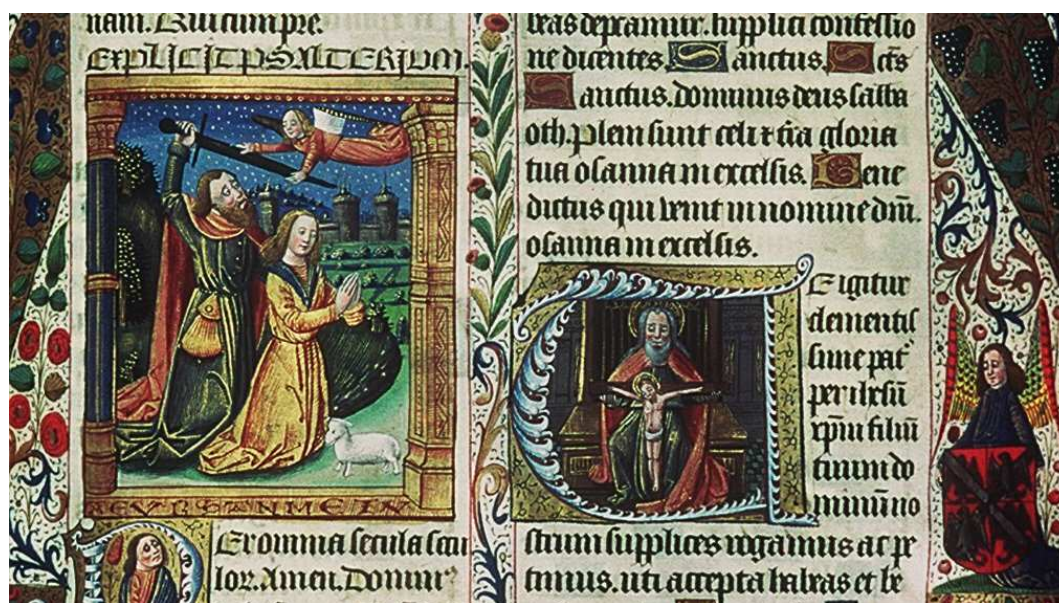 nam. Qui cum pre.
EXPLICIT PSALTERIUM.
Per omnia secula secu
lor. Amen. Domin⁹
beas deprecamur. supplici confessio
ne dicentes. Sanctus. Scts
Sanctus. dominus deus saba
oth. pleni sunt celi et t̄ra gloria
tua osanna in excelsis. Bene
dictus qui venit in nomine dn̄i.
osanna in excelsis.
Te igitur
clementis
sime pat̄
per ihesū
xp̄m filiū
tuum do
minū no
strum supplices rogamus ac pe
timus. uti accepta habeas et be